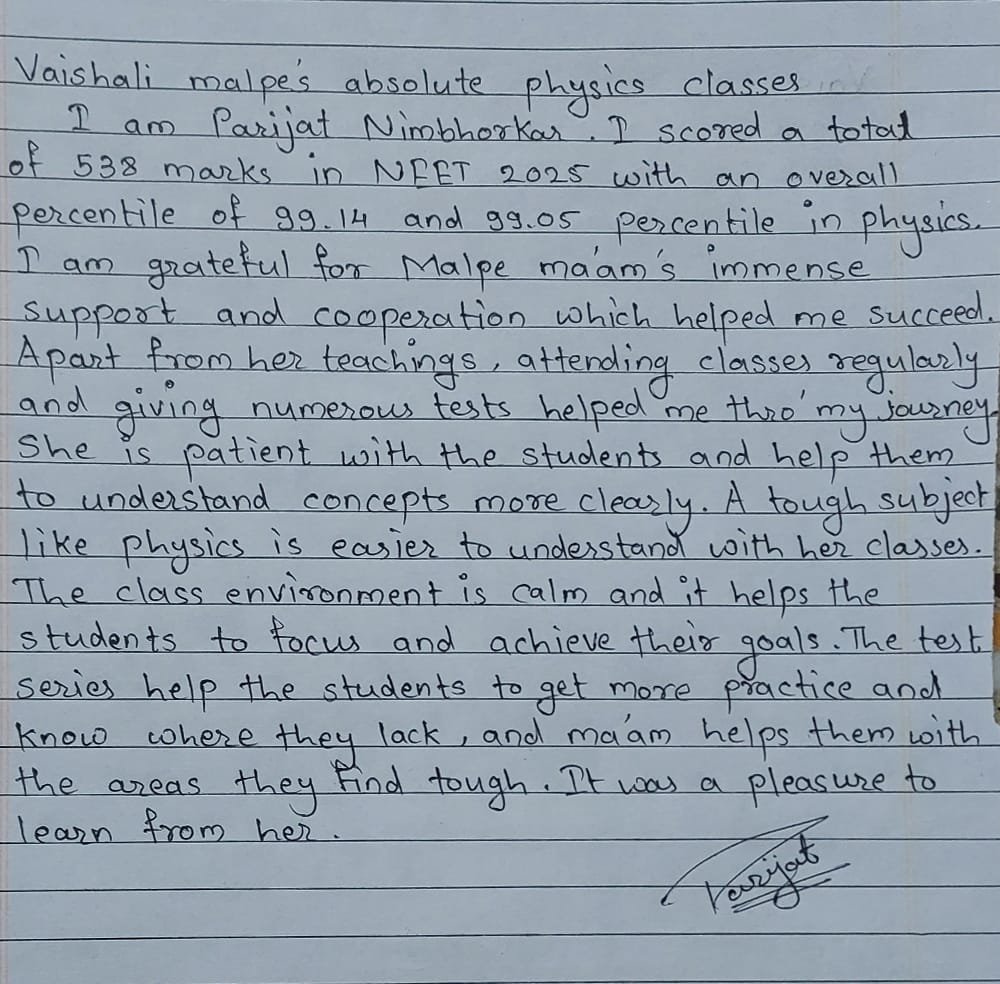 Vaishali malpe's absolute physics classes
I am Parijat Nimbhorkar. I scored a total
of 538 marks in NEET 2025 with an overall
percentile of 99.14 and 99.05 percentile in physics.
I am grateful for Malpe ma'am's immense
support and cooperation which helped me succeed.
Apart from her teachings, attending classes regularly
and giving numerous tests helped me thro' my journey.
She is patient with the students and help them
to understand concepts more clearly. A tough subject
like physics is easier to understand with her classes.
The class environment is calm and it helps the
students to focus and achieve their goals. The test
series help the students to get more practice and
know where they lack, and ma'am helps them with
the areas they find tough. It was a pleasure to
learn from her.
Parijat